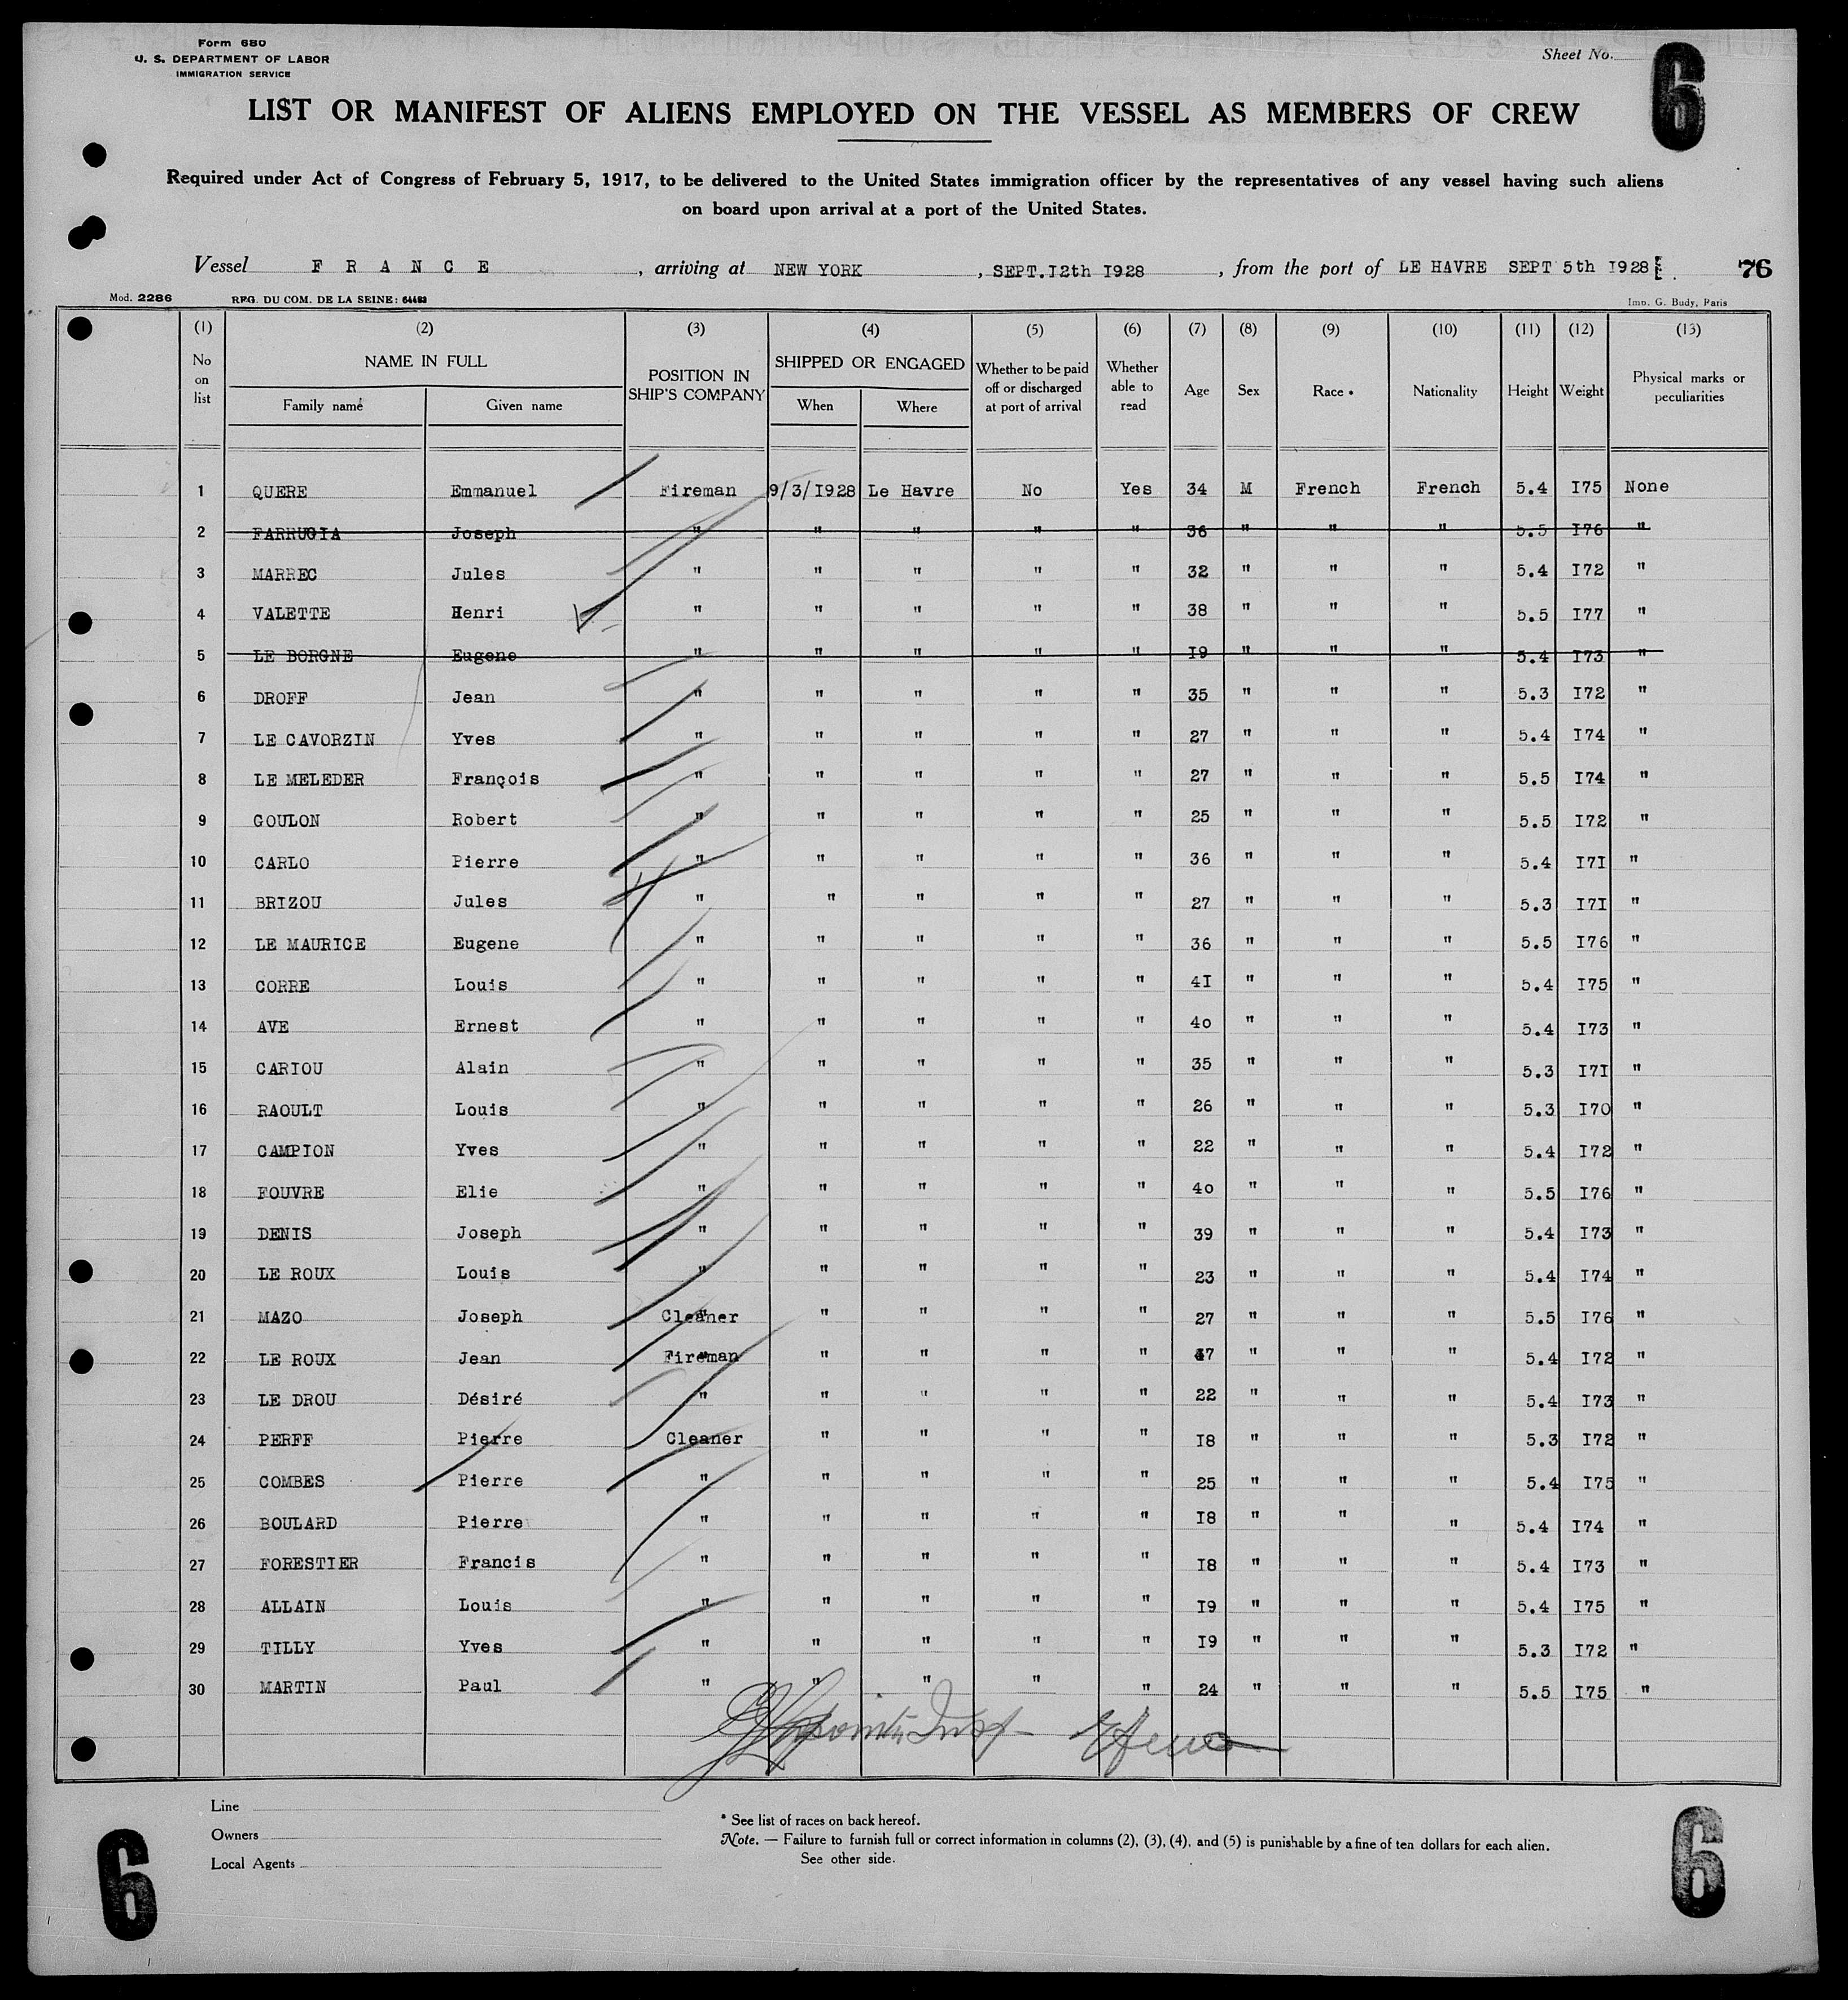 Form 680
U. S. DEPARTMENT OF LABOR
IMMIGRATION SERVICE
Sheet No.
6
LIST OR MANIFEST OF ALIENS EMPLOYED ON THE VESSEL AS MEMBERS OF CREW
Required under Act of Congress of February 5, 1917, to be delivered to the United States immigration officer by the representatives of any vessel having such aliens
on board upon arrival at a port of the United States.
Vessel F R A N C E , arriving at NEW YORK , SEPT.I2th I928 , from the port of LE HAVRE SEPT 5th I928 76
Mod. 2286 REG. DU COM. DE LA SEINE: 64483 Imp. G. Budy, Paris
(1) (2) (3) (4) (5) (6) (7) (8) (9) (10) (11) (12) (13)
No on list NAME IN FULL Family name Given name POSITION IN SHIP'S COMPANY SHIPPED OR ENGAGED When Where Whether to be paid off or discharged at port of arrival Whether able to read Age Sex Race * Nationality Height Weight Physical marks or peculiarities
1 QUERE Emmanuel Fireman 9/3/I928 Le Havre No Yes 34 M French French 5.4 I75 None
2 FARRUGIA Joseph " " " " " 36 " " " 5.5 I76 "
3 MARREC Jules " " " " " 32 " " " 5.4 I72 "
4 VALETTE Henri " " " " " 38 " " " 5.5 I77 "
5 LE BORGNE Eugene " " " " " I9 " " " 5.4 I73 "
6 DROFF Jean " " " " " 35 " " " 5.3 I72 "
7 LE CAVORZIN Yves " " " " " 27 " " " 5.4 I74 "
8 LE MELEDER François " " " " " 27 " " " 5.5 I74 "
9 GOULON Robert " " " " " 25 " " " 5.5 I72 "
10 CARLO Pierre " " " " " 36 " " " 5.4 I7I "
11 BRIZOU Jules " " " " " 27 " " " 5.3 I7I "
12 LE MAURICE Eugene " " " " " 36 " " " 5.5 I76 "
13 CORRE Louis " " " " " 4I " " " 5.4 I75 "
14 AVE Ernest " " " " " 4o " " " 5.4 I73 "
15 CARIOU Alain " " " " " 35 " " " 5.3 I7I "
16 RAOULT Louis " " " " " 26 " " " 5.3 I70 "
17 CAMPION Yves " " " " " 22 " " " 5.4 I72 "
18 FOUVRE Elie " " " " " 4o " " " 5.5 I76 "
19 DENIS Joseph " " " " " 39 " " " 5.4 I73 "
20 LE ROUX Louis " " " " " 23 " " " 5.4 I74 "
21 MAZO Joseph Cleaner " " " " 27 " " " 5.5 I76 "
22 LE ROUX Jean Fireman " " " " 47 " " " 5.4 I72 "
23 LE DROU Désiré " " " " " 22 " " " 5.4 I73 "
24 PERFF Pierre Cleaner " " " " I8 " " " 5.3 I72 "
25 COMBES Pierre " " " " " 25 " " " 5.4 I75 "
26 BOULARD Pierre " " " " " I8 " " " 5.4 I74 "
27 FORESTIER Francis " " " " " I8 " " " 5.4 I73 "
28 ALLAIN Louis " " " " " I9 " " " 5.4 I75 "
29 TILLY Yves " " " " " I9 " " " 5.3 I72 "
30 MARTIN Paul " " " " " 24 " " " 5.5 I75 "
Line
Owners
Local Agents
* See list of races on back hereof.
Note. — Failure to furnish full or correct information in columns (2), (3), (4), and (5) is punishable by a fine of ten dollars for each alien.
See other side.
6
6